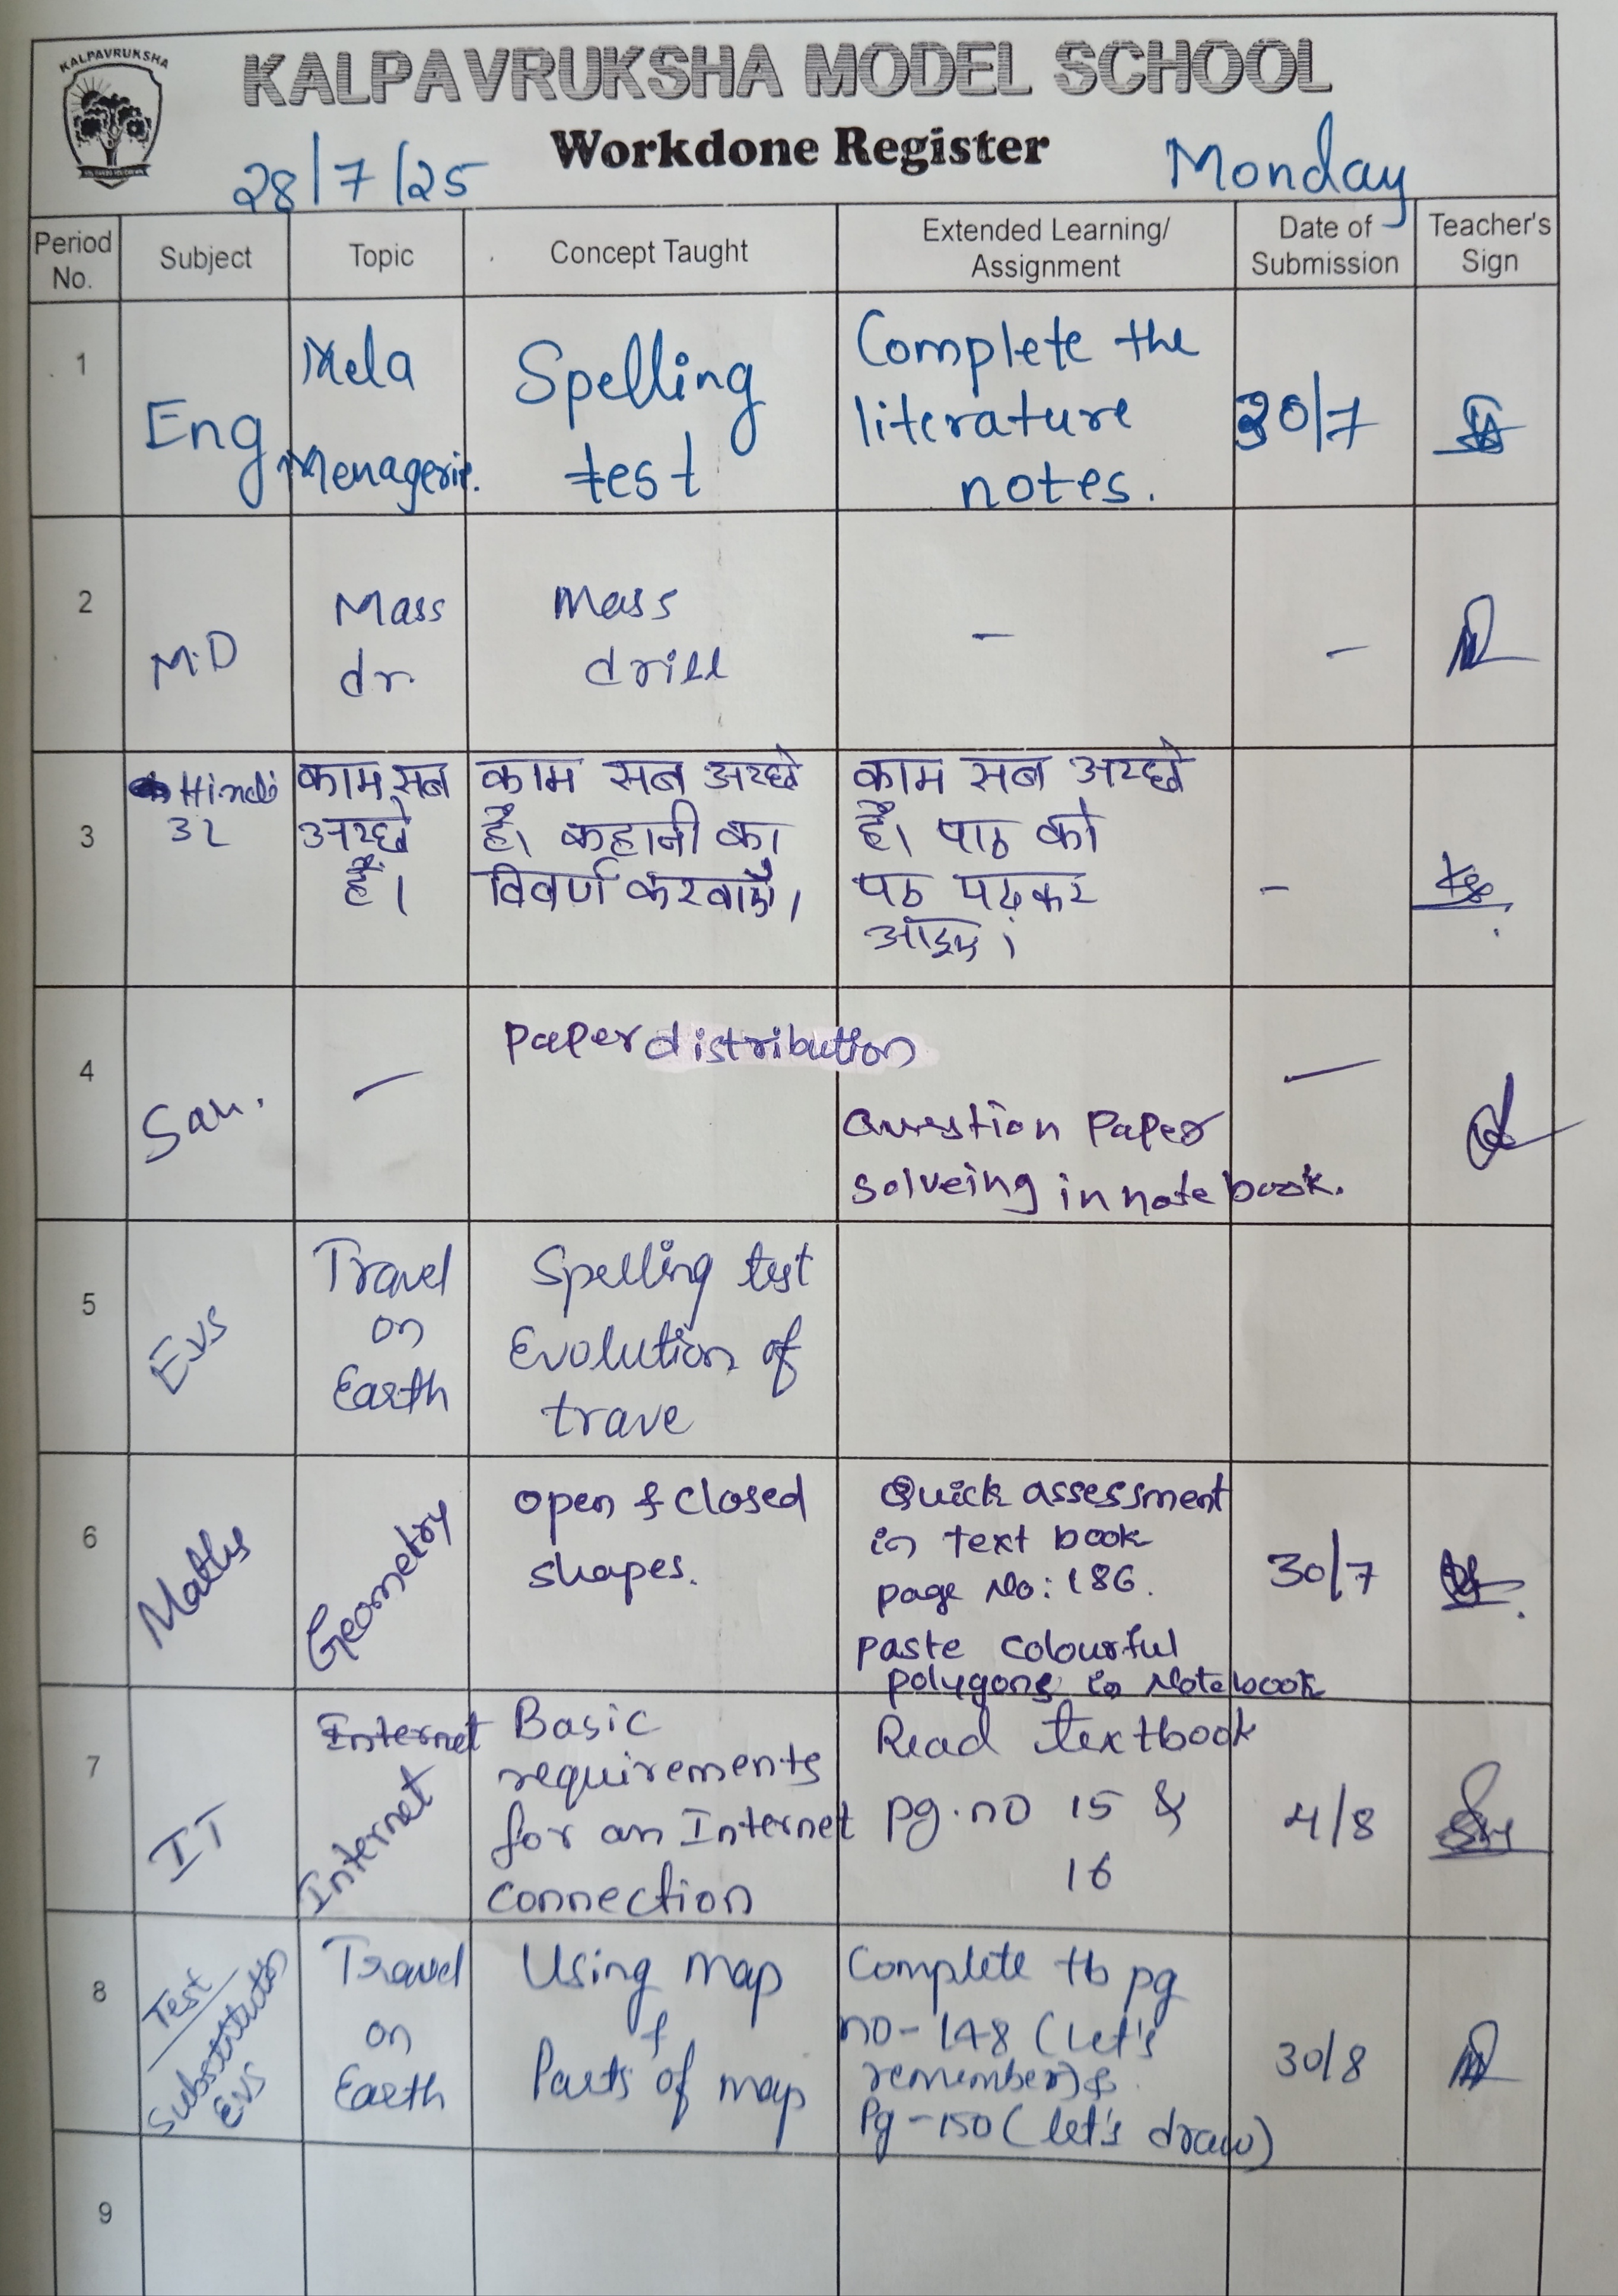 KALPAVRUKSHA
KALPAVRUKSHA MODEL SCHOOL
Workdone Register
28/7/25
Monday
Period No.
Subject
Topic
Concept Taught
Extended Learning/
Assignment
Date of
Submission
Teacher's
Sign
1
Eng
Mela
Menagerie.
Spelling
test
Complete the
literature
notes.
30/7
2
M.D
Mass
dr.
Mass
drill
-
-
3
Hindi
3L
काम सब
अच्छे
हैं।
काम सब अच्छे
है। कहानी का
विवर्ण करवाऐं।
काम सब अच्छे
है। पाठ को
पठ पढ़कर
आइए।
-
4
San.
-
Paper distribution
Question Paper
solveing in note book.
-
5
EVS
Travel
on
Earth
Spelling test
Evolution of
trave
6
Maths
Geometry
open & closed
shapes.
Quick assessment
in text book
page No: 186.
paste colourful
polygons in Notebook
30/7
7
IT
Internet
Internet
Basic
requirements
for an Internet
connection
Read textbook
pg.no 15 &
16
4/8
8
Test/
Substitution
EVS
Travel
on
Earth
Using map
&
Parts of map
Complete tb pg
no-148 (Let's
remember) &
Pg-150 (let's draw)
30/8
9